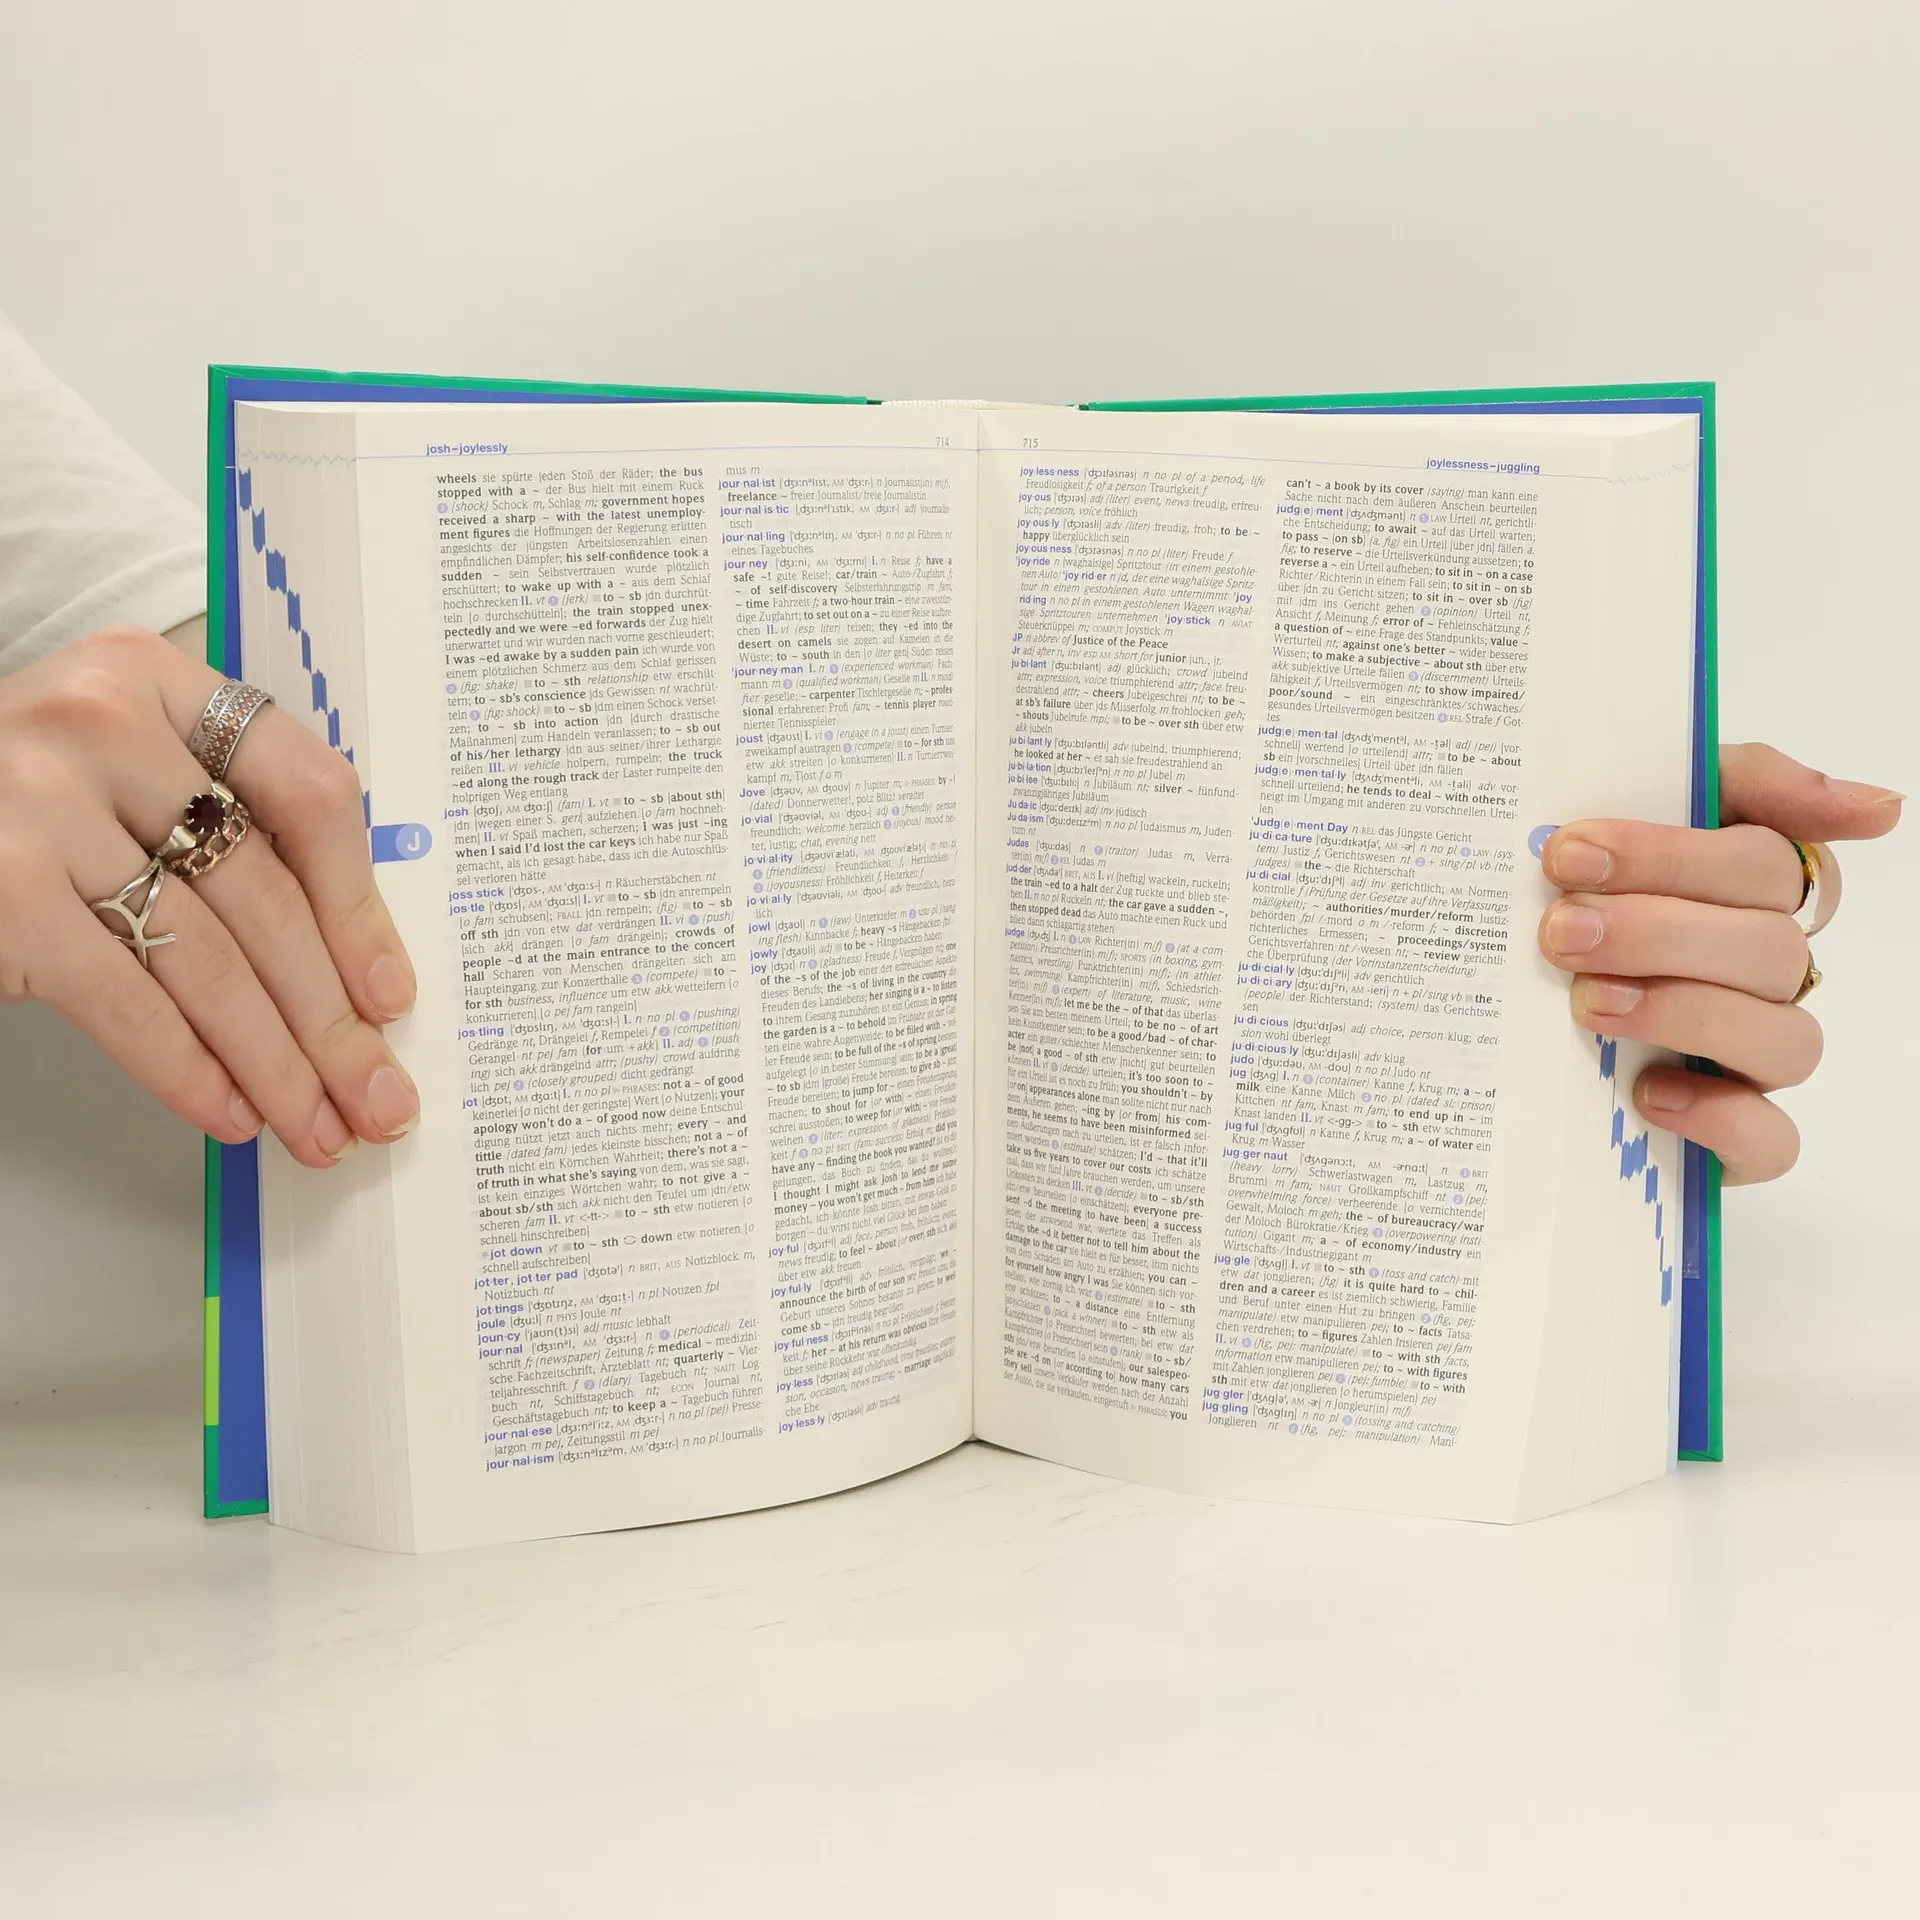 josh–joylessly
714
wheels sie spürte jeden Stoß der Räder; the bus
stopped with a ~ der Bus hielt mit einem Ruck
(shock) Schock m, Schlag m; government hopes
received a sharp ~ with the latest unemploy-
ment figures die Hoffnungen der Regierung erlitten
angesichts der jüngsten Arbeitslosenzahlen einen
empfindlichen Dämpfer; his self-confidence took a
sudden ~ sein Selbstvertrauen wurde plötzlich
erschüttert; to wake up with a ~ aus dem Schlaf
hochschrecken II. vt (jerk) ■to ~ sb jdn durchrüt-
teln [o durchschütteln]; the train stopped unex-
pectedly and we were ~ed forwards der Zug hielt
unerwartet und wir wurden nach vorne geschleudert;
I was ~ed awake by a sudden pain ich wurde von
einem plötzlichen Schmerz aus dem Schlaf gerissen
(fig: shake) ■to ~ sth relationship etw erschüt-
tern; to ~ sb's conscience jds Gewissen nt wachrüt-
teln (fig: shock) ■to ~ sb jdm einen Schock verset-
zen; to ~ sb into action jdn [durch drastische
Maßnahmen] zum Handeln veranlassen; to ~ sb out
of his/her lethargy jdn aus seiner/ihrer Lethargie
reißen III. vi vehicle holpern, rumpeln; the truck
~ed along the rough track der Laster rumpelte den
holprigen Weg entlang
josh [dʒɒʃ, AM dʒɑːʃ] (fam) I. vt ■to ~ sb [about sth]
jdn [wegen einer S. gen] aufziehen [o fam hochneh-
men] II. vi Spaß machen, scherzen; I was just ~ing
when I said I'd lost the car keys ich habe nur Spaß
gemacht, als ich gesagt habe, dass ich die Autoschlüs-
sel verloren hätte
joss stick ['dʒɒs-, AM 'dʒɑːs-] n Räucherstäbchen nt
jos·tle ['dʒɒsl, AM 'dʒɑːsl] I. vt ■to ~ sb jdn anrempeln
[o fam schubsen]; FBALL jdn rempeln; (fig) ■to ~ sb
off sth jdn von etw dat verdrängen II. vi (push)
[sich akk] drängen [o fam drängeln]; crowds of
people ~d at the main entrance to the concert
hall Scharen von Menschen drängelten sich am
Haupteingang zur Konzerthalle (compete) ■to ~
for sth business, influence um etw akk wetteifern [o
konkurrieren] [o pej fam rangeln]
jos·tling ['dʒɒslɪŋ, AM 'dʒɑːsl-] I. n no pl (pushing)
Gedränge nt, Drängelei f, Rempelei f (competition)
Gerangel nt pej fam (for um +akk) II. adj (push-
ing) sich akk drängelnd attr; (pushy) crowd aufdring-
lich pej (closely grouped) dicht gedrängt
jot [dʒɒt, AM dʒɑːt] I. n no pl ▶PHRASES: not a ~ of good
keinerlei [o nicht der geringste] Wert [o Nutzen]; your
apology won't do a ~ of good now deine Entschul-
digung nützt jetzt auch nichts mehr; every ~ and
tittle (dated fam) jedes kleinste bisschen; not a ~ of
truth nicht ein Körnchen Wahrheit; there's not a ~
of truth in what she's saying von dem, was sie sagt,
ist kein einziges Wörtchen wahr; to not give a ~
about sb/sth sich akk nicht den Teufel um jdn/etw
scheren fam II. vt <-tt-> ■to ~ sth etw notieren [o
schnell hinschreiben]
jot down vt ■to ~ sth down etw notieren [o
schnell aufschreiben]
jot·ter, jot·ter pad ['dʒɒtəʳ] n BRIT, AUS Notizblock m,
Notizbuch nt
jot·tings ['dʒɒtɪŋz, AM 'dʒɑːt̬-] n pl Notizen fpl
joule [dʒuːl] n PHYS Joule nt
joun·cy ['jaʊn(t)si] adj music lebhaft
jour·nal ['dʒɜːnəl, AM 'dʒɜːr-] n (periodical) Zeit-
schrift f; (newspaper) Zeitung f; medical ~ medizini-
sche Fachzeitschrift, Ärzteblatt nt; quarterly ~ Vier-
teljahresschrift f (diary) Tagebuch nt; NAUT Log-
buch nt, Schiffstagebuch nt; ECON Journal nt,
Geschäftstagebuch nt; to keep a ~ Tagebuch führen
jour·nal·ese [ˌdʒɜːnəl'iːz, AM ˌdʒɜːr-] n no pl (pej) Presse-
jargon m pej, Zeitungsstil m pej
jour·nal·ism ['dʒɜːnəlɪzəm, AM 'dʒɜːr-] n no pl Journalis-
mus m
jour·nal·ist ['dʒɜːnəlɪst, AM 'dʒɜːr-] n Journalist(in) m(f);
freelance ~ freier Journalist/freie Journalistin
jour·nal·is·tic [ˌdʒɜːnəl'ɪstɪk, AM ˌdʒɜːr-] adj journalis-
tisch
jour·nal·ling ['dʒɜːnəlɪŋ, AM 'dʒɜːr-] n no pl Führen nt
eines Tagebuches
jour·ney ['dʒɜːni, AM 'dʒɜːrni] I. n Reise f; have a
safe ~! gute Reise!; car/train ~ Auto-/Zugfahrt f;
~ of self-discovery Selbsterfahrungstrip m fam;
~ time Fahrzeit f; a two-hour train ~ eine zweistün-
dige Zugfahrt; to set out on a ~ zu einer Reise aufbre-
chen II. vi (esp liter) reisen; they ~ed into the
desert on camels sie zogen auf Kamelen in die
Wüste; to ~ south in den [o liter gen] Süden reisen
'jour·ney·man I. n (experienced workman) Fach-
mann m (qualified workman) Geselle m II. n modi-
fier -geselle; ~ carpenter Tischlergeselle m; ~ profes-
sional erfahrener Profi fam; ~ tennis player rou-
nierter Tennisspieler
joust [dʒaʊst] I. vi (engage in a joust) einen Turnier-
zweikampf austragen (compete) ■to ~ for sth um
etw akk streiten [o konkurrieren] II. n Turnierzwei-
kampf m, Tjost f o m
Jove [dʒəʊv, AM dʒoʊv] n Jupiter m; ▶PHRASES: by ~!
(dated) Donnerwetter!, potz Blitz! veraltet
jo·vial ['dʒəʊviəl, AM 'dʒoʊ-] adj (friendly) person
freundlich; welcome herzlich (joyous) mood hei-
ter, lustig; chat, evening nett
jo·vi·al·ity [ˌdʒəʊvi'æləti, AM ˌdʒoʊvi'æləti] n no pl
(friendliness) Freundlichkeit f, Herzlichkeit f
(joyousness) Fröhlichkeit f, Heiterkeit f
jo·vi·al·ly ['dʒəʊviəli, AM 'dʒoʊ-] adv freundlich, herz-
lich
jowl [dʒaʊl] n (jaw) Unterkiefer m usu pl (hang-
ing flesh) Kinnbacke f; heavy ~s Hängebacken fpl
jowly [dʒaʊli] adj ■to be ~ Hängebacken haben
joy [dʒɔɪ] n (gladness) Freude f, Vergnügen nt; one
of the ~s of the job einer der erfreulichen Aspekte
dieses Berufs; the ~s of living in the country die
Freuden des Landlebens; her singing is a ~ to listen
to ihrem Gesang zuzuhören ist ein Genuss; in spring
the garden is a ~ to behold im Frühjahr ist der Gar-
ten eine wahre Augenweide; to be filled with ~ vol-
ler Freude sein; to be full of the ~s of spring bestens
aufgelegt [o in bester Stimmung] sein; to be a [great]
~ to sb jdn [große] Freude bereiten; to give sb ~ jdm
Freude bereiten; to jump for ~ einen Freudensprung
machen; to shout for [or with] ~ einen Freuden-
schrei ausstoßen; to weep for [or with] ~ vor Freude
weinen (liter: expression of gladness) Fröhlich-
keit f no pl BRIT (fam: success) Erfolg m; did you
have any ~ finding the book you wanted? ist es dir
gelungen, das Buch zu finden, das du wolltest?;
I thought I might ask Josh to lend me some
money ~ you won't get much ~ from him ich habe
gedacht, ich könnte Josh bitten, mir etwas Geld zu
borgen ~ du wirst nicht viel Glück bei ihm haben
joy·ful ['dʒɔɪfəl] adj face, person froh, fröhlich; event,
news freudig; to feel ~ about [or over] sth sich akk
über etw akk freuen
joy·ful·ly ['dʒɔɪfəli] adv fröhlich, vergnügt; we ~
announce the birth of our son wir freuen uns, die
Geburt unseres Sohnes bekannt zu geben; to wel-
come sb ~ jdn freudig begrüßen
joy·ful·ness ['dʒɔɪfəlnəs] n no pl Fröhlichkeit f, Heiter-
keit f; her ~ at his return was obvious ihre Freude
über seine Rückkehr war offenkundig
joy·less ['dʒɔɪləs] adj childhood, time freudlos; expres-
sion, occasion, news traurig; ~ marriage unglückli-
che Ehe
joy·less·ly ['dʒɔɪləsli] adv traurig
J
715
joylessness–juggling
joy·less·ness ['dʒɔɪləsnəs] n no pl of a period, life
Freudlosigkeit f; of a person Traurigkeit f
joy·ous ['dʒɔɪəs] adj (liter) event, news freudig, erfreu-
lich; person, voice fröhlich
joy·ous·ly ['dʒɔɪəsli] adv (liter) freudig, froh; to be ~
happy überglücklich sein
joy·ous·ness ['dʒɔɪəsnəs] n no pl (liter) Freude f
'joy·ride n [waghalsige] Spritztour (in einem gestohle-
nen Auto) 'joy·rid·er n jd, der eine waghalsige Spritz-
tour in einem gestohlenen Auto unternimmt 'joy·
rid·ing n no pl in einem gestohlenen Wagen waghal-
sige Spritztouren unternehmen 'joy·stick n AVIAT
Steuerknüppel m; COMPUT Joystick m
JP n abbrev of Justice of the Peace
Jr adj after n, inv esp AM short for junior jun., jr.
ju·bi·lant ['dʒuːbɪlənt] adj glücklich; crowd jubelnd
attr; expression, voice triumphierend attr; face freu-
destrahlend attr; ~ cheers Jubelgeschrei nt; to be ~
at sb's failure über jds Misserfolg m frohlocken geh;
~ shouts Jubelrufe mpl; ■to be ~ over sth über etw
akk jubeln
ju·bi·lant·ly ['dʒuːbɪləntli] adv jubelnd, triumphierend;
he looked at her ~ er sah sie freudestrahlend an
ju·bi·la·tion [ˌdʒuːbɪ'leɪʃən] n no pl Jubel m
ju·bi·lee ['dʒuːbɪliː] n Jubiläum nt; silver ~ fünfund-
zwanzigjähriges Jubiläum
Ju·da·ic [dʒuː'deɪɪk] adj inv jüdisch
Ju·da·ism ['dʒuːdeɪɪzəm] n no pl Judaismus m, Juden-
tum nt
Judas ['dʒuːdəs] n (traitor) Judas m, Verrä-
ter(in) m(f) REL Judas m
jud·der ['dʒʌdəʳ] BRIT, AUS I. vi [heftig] wackeln, ruckeln;
the train ~ed to a halt der Zug ruckte und blieb ste-
hen II. n no pl Ruckeln nt; the car gave a sudden ~,
then stopped dead das Auto machte einen Ruck und
blieb dann schlagartig stehen
judge [dʒʌdʒ] I. n LAW Richter(in) m(f) (at a com-
petition) Preisrichter(in) m(f); SPORTS (in boxing, gym-
nastics, wrestling) Punktrichter(in) m(f); (in athlet-
ics, swimming) Kampfrichter(in) m(f), Schiedsrich-
ter(in) m(f) (expert) of literature, music, wine
Kenner(in) m(f); let me be the ~ of that das überlas-
sen Sie am besten meinem Urteil; to be no ~ of art
kein Kunstkenner sein; to be a good/bad ~ of char-
acter ein guter/schlechter Menschenkenner sein; to
be [not] a good ~ of sth etw [nicht] gut beurteilen
können II. vi (decide) urteilen; it's too soon to ~
für ein Urteil ist es noch zu früh; you shouldn't ~ by
[or on] appearances alone man sollte nicht nur nach
dem Äußeren gehen; ~ing by [or from] his com-
ments, he seems to have been misinformed sei-
nen Äußerungen nach zu urteilen, ist er falsch infor-
miert worden (estimate) schätzen; I'd ~ that it'll
take us five years to cover our costs ich schätze
mal, dass wir fünf Jahre brauchen werden, um unsere
Unkosten zu decken III. vt (decide) ■to ~ sb/sth
jdn/etw beurteilen [o einschätzen]; everyone pre-
sent ~d the meeting [to have been] a success
jeder, der anwesend war, wertete das Treffen als
Erfolg; she ~d it better not to tell him about the
damage to the car sie hielt es für besser, ihm nichts
von dem Schaden am Auto zu erzählen; you can ~
for yourself how angry I was Sie können sich vor-
stellen, wie zornig ich war (estimate) ■to ~ sth
etw schätzen; to ~ a distance eine Entfernung
[ab]schätzen (pick a winner) ■to ~ sth etw als
Kampfrichter [o Preisrichter] bewerten, bei etw dat
Kampfrichter [o Preisrichter] sein (rank) ■to ~ sb/
sth jdn/etw beurteilen [o einstufen]; our salespeo-
ple are ~d on [or according to] how many cars
they sell unsere Verkäufer werden nach der Anzahl
der Autos, die sie verkaufen, eingestuft ▶PHRASES: you
can't ~ a book by its cover (saying) man kann eine
Sache nicht nach dem äußeren Anschein beurteilen
judg(e)·ment ['dʒʌdʒmənt] n LAW Urteil nt, gerichtli-
che Entscheidung; to await ~ auf das Urteil warten;
to pass ~ [on sb] (a. fig) ein Urteil [über jdn] fällen a.
fig; to reserve ~ die Urteilsverkündung aussetzen; to
reverse a ~ ein Urteil aufheben; to sit in ~ on a case
Richter/Richterin in einem Fall sein; to sit in ~ on sb
über jdn zu Gericht sitzen; to sit in ~ over sb (fig)
mit jdm ins Gericht gehen (opinion) Urteil nt,
Ansicht f, Meinung f; error of ~ Fehleinschätzung f;
a question of ~ eine Frage des Standpunkts; value ~
Werturteil nt; against one's better ~ wider besseres
Wissen; to make a subjective ~ about sth über etw
akk subjektive Urteile fällen (discernment) Urteils-
fähigkeit f, Urteilsvermögen nt; to show impaired/
poor/sound ~ ein eingeschränktes/schwaches/
gesundes Urteilsvermögen besitzen REL Strafe f Got-
tes
judg(e)·men·tal [dʒʌdʒ'mentəl, AM -t̬əl] adj (pej) [vor-
schnell] wertend [o urteilend] attr; ■to be ~ about
sb ein [vorschnelles] Urteil über jdn fällen
judg(e)·men·tal·ly [dʒʌdʒ'mentəli, AM -t̬əli] adv vor-
schnell urteilend; he tends to deal ~ with others er
neigt im Umgang mit anderen zu vorschnellen Urtei-
len
'Judg(e)·ment Day n REL das Jüngste Gericht
ju·di·ca·ture ['dʒuːdɪkətʃəʳ, AM -ɚ] n no pl LAW (sys-
tem) Justiz f, Gerichtswesen nt + sing/pl vb (the
judges) ■the ~ die Richterschaft
ju·di·cial [dʒuː'dɪʃəl] adj inv gerichtlich; AM Normen-
kontrolle f (Prüfung der Gesetze auf ihre Verfassungs-
mäßigkeit); ~ authorities/murder/reform Justiz-
behörden fpl /-mord o m /-reform f; ~ discretion
richterliches Ermessen; ~ proceedings/system
Gerichtsverfahren nt /-wesen nt; ~ review gerichtli-
che Überprüfung (der Vorinstanzentscheidung)
ju·di·cial·ly [dʒuː'dɪʃəli] adv gerichtlich
ju·di·ci·ary [dʒuː'dɪʃəri, AM -ieri] n + pl/sing vb ■the ~
(people) der Richterstand; (system) das Gerichtswe-
sen
ju·di·cious [dʒuː'dɪʃəs] adj choice, person klug; deci-
sion wohl überlegt
ju·di·cious·ly [dʒuː'dɪʃəsli] adv klug
judo ['dʒuːdəʊ, AM -doʊ] n no pl Judo nt
jug [dʒʌg] I. n (container) Kanne f, Krug m; a ~ of
milk eine Kanne Milch no pl (dated sl: prison)
Kittchen nt fam, Knast m fam; to end up in ~ im
Knast landen II. vt <-gg-> ■to ~ sth etw schmoren
jug·ful ['dʒʌgfʊl] n Kanne f, Krug m; a ~ of water ein
Krug m Wasser
jug·ger·naut ['dʒʌgənɔːt, AM -ɚnɑːt] n BRIT
(heavy lorry) Schwerlastwagen m, Lastzug m,
Brummi m fam; NAUT Großkampfschiff nt (pej:
overwhelming force) verheerende [o vernichtende]
Gewalt, Moloch m geh; the ~ of bureaucracy/war
der Moloch Bürokratie/Krieg (overpowering insti-
tution) Gigant m; a ~ of economy/industry ein
Wirtschafts-/Industriegigant m
jug·gle ['dʒʌgl] I. vt ■to ~ sth (toss and catch) mit
etw dat jonglieren; (fig) it is quite hard to ~ chil-
dren and a career es ist ziemlich schwierig, Familie
und Beruf unter einen Hut zu bringen (fig, pej:
manipulate) etw manipulieren; to ~ facts Tatsa-
chen verdrehen; to ~ figures Zahlen frisieren pej fam
II. vi (fig, pej: manipulate) ■to ~ with sth facts,
information etw manipulieren pej; to ~ with figures
mit Zahlen jonglieren pej (pej: fumble) ■to ~ with
sth mit etw dat jonglieren [o herumspielen] pej
jug·gler ['dʒʌgləʳ, AM -ɚ] n Jongleur(in) m(f)
jug·gling ['dʒʌglɪŋ] n no pl (tossing and catching)
Jonglieren nt (fig, pej: manipulation) Mani-